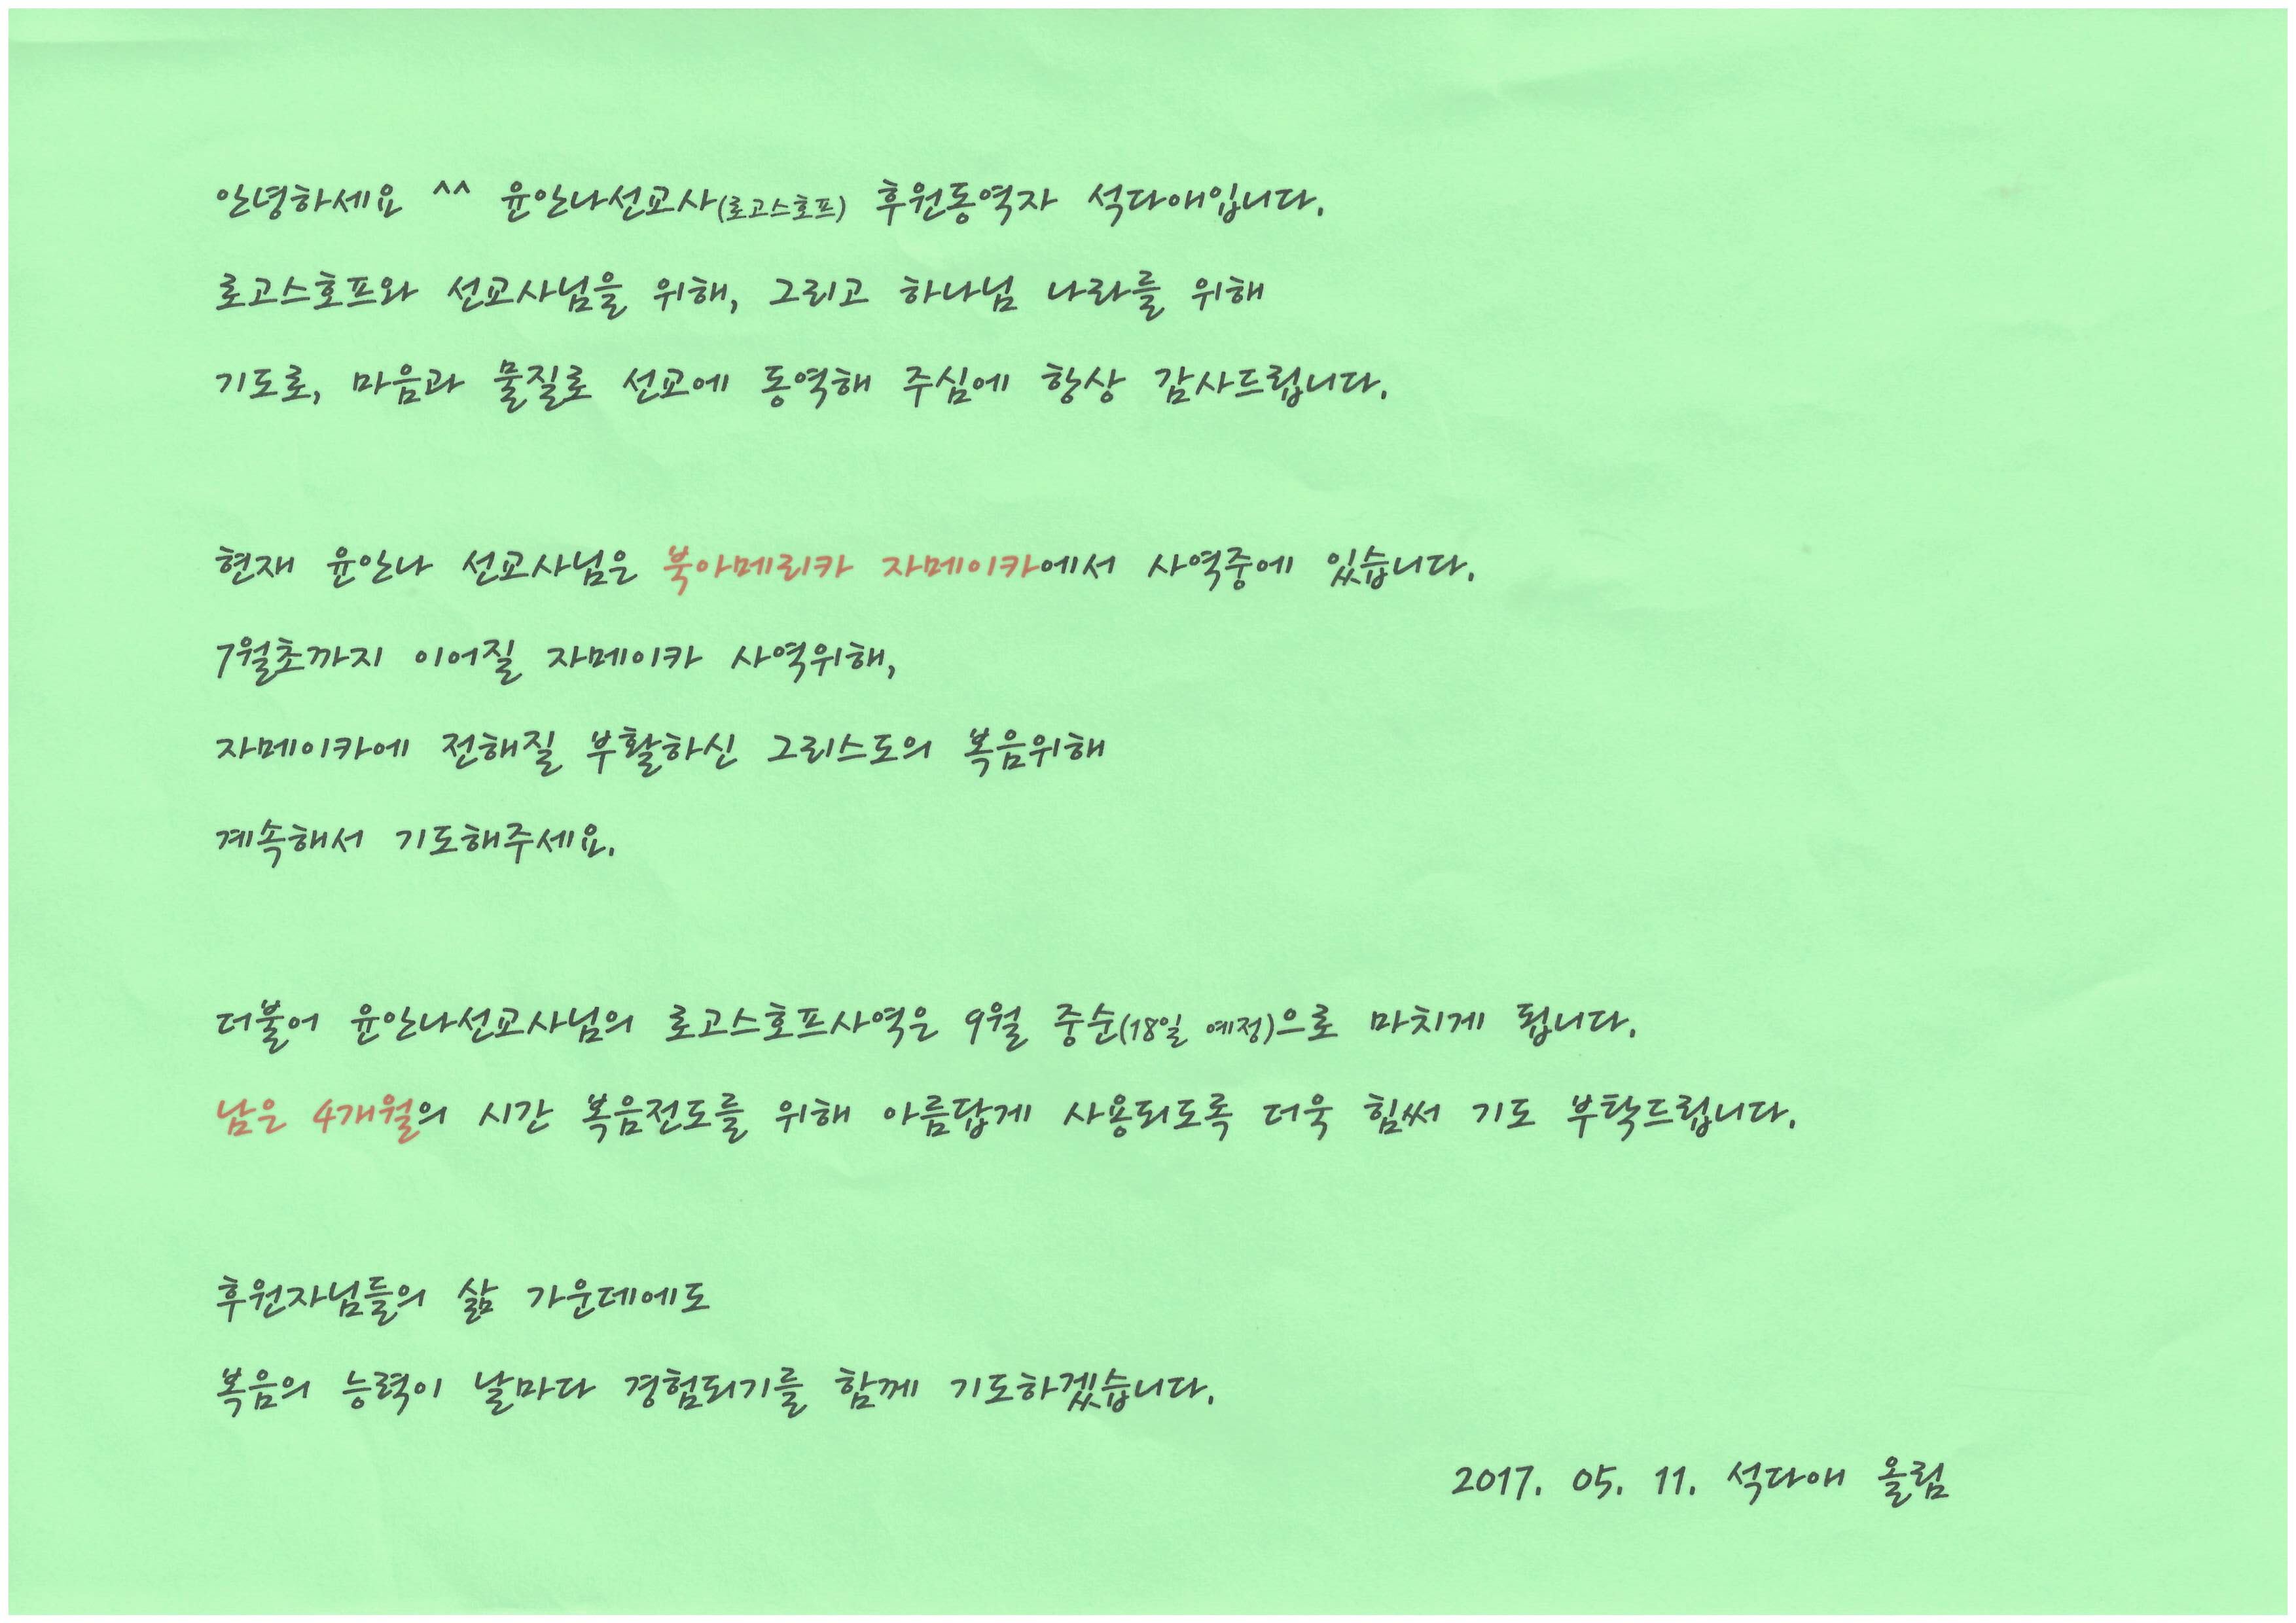 안녕하세요 ^^ 윤안나선교사(로고스호프) 후원동역자 석다애입니다.
로고스호프와 선교사님을 위해, 그리고 하나님 나라를 위해
기도로, 마음과 물질로 선교에 동역해 주심에 항상 감사드립니다.
현재 윤안나 선교사님은 북아메리카 자메이카에서 사역중에 있습니다.
7월초까지 이어질 자메이카 사역위해,
자메이카에 전해질 부활하신 그리스도의 복음위해
계속해서 기도해주세요.
더불어 윤안나선교사님의 로고스호프사역은 9월 중순(18일 예정)으로 마치게 됩니다.
남은 4개월의 시간 복음전도를 위해 아름답게 사용되도록 더욱 힘써 기도 부탁드립니다.
후원자님들의 삶 가운데에도
복음의 능력이 날마다 경험되기를 함께 기도하겠습니다.
2017. 05. 11. 석다애 올림